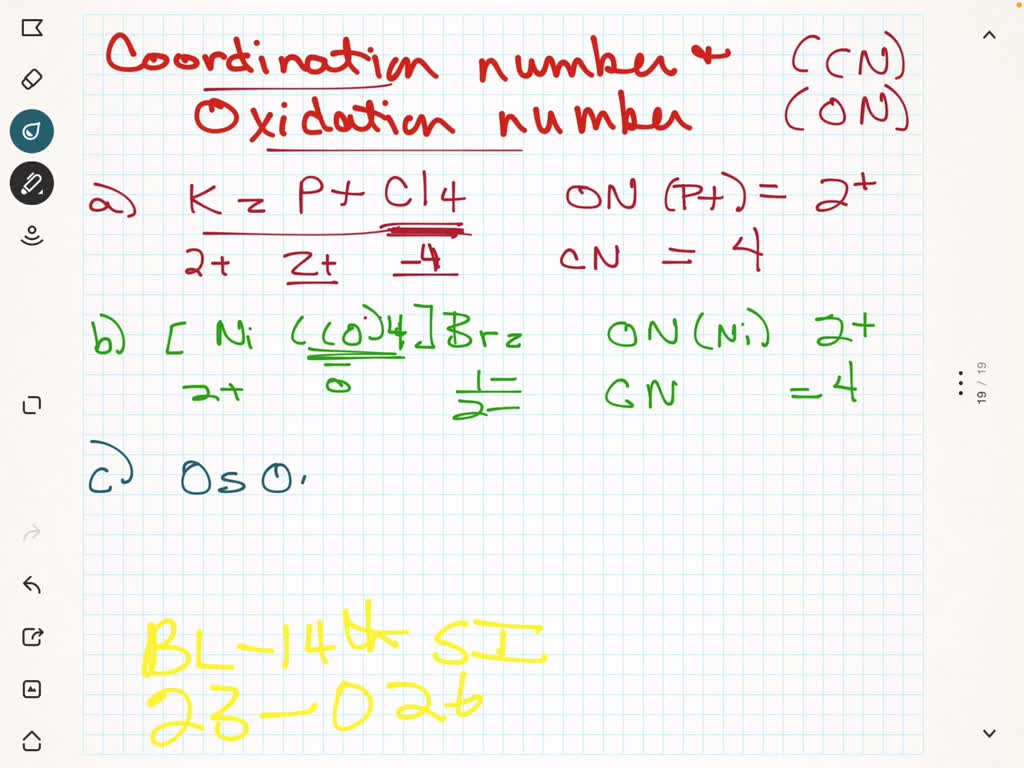 Coordination number & (CN)
Oxidation number (ON)
a) K2 Pt Cl4 ON (Pt) = 2+
2+ 2+ -4 CN = 4
b) [Ni (CO)4] Br2 ON (Ni) 2+
2+ 0 1- CN = 4
2-
c) Os O
BL-14th SI
23-026
19 / 19